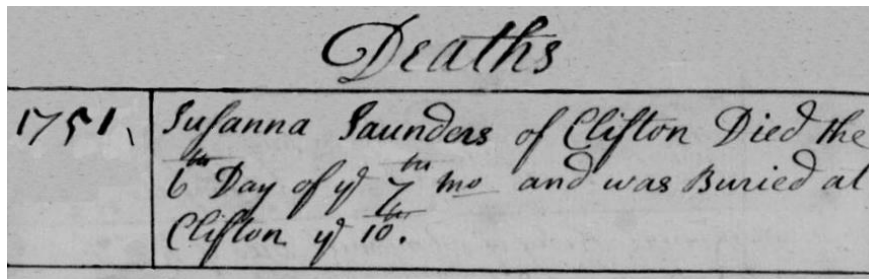 Deaths
1751, Susanna Saunders of Clifton Died the
6th Day of ye 7th mo and was Buried at
Clifton ye 10th.